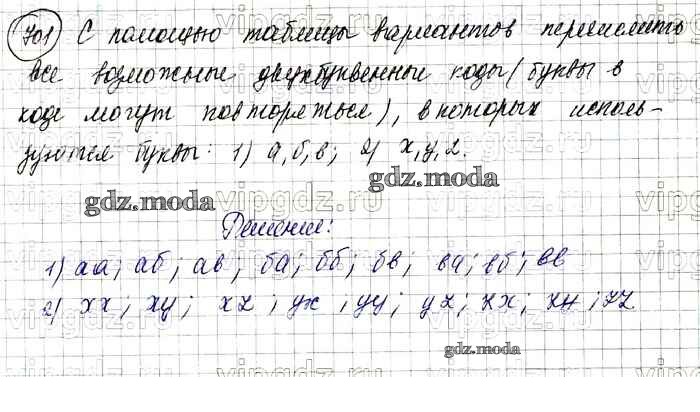 701 С помощью таблицы вариантов перечислить
все возможные двухбуквенные коды (буквы в
коде могут повторяться), в которых исполь-
зуются буквы: 1) а, б, в; 2) x, y, z.
gdz.moda
gdz.moda
Решение:
1) аа; аб; ав; ба; бб; бв; ва; вб; вв
2) xx; xy; xz; yx; yy; yz; zx; zy; zz
gdz.moda
vipgdz.ru